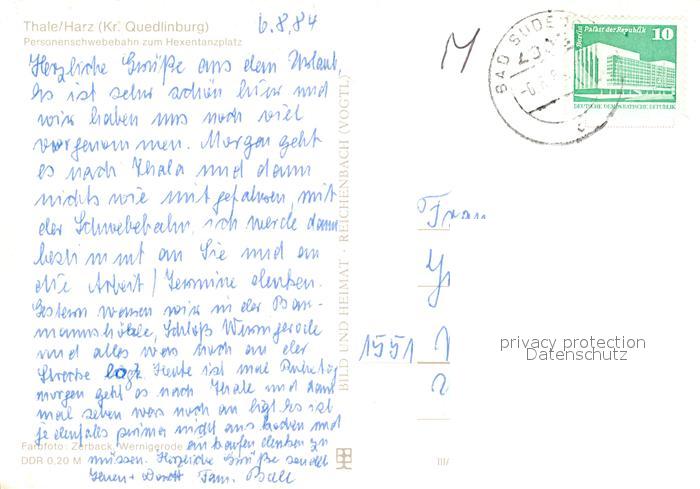 Thale/Harz (Kr. Quedlinburg)
6.8.84
Personenschwebebahn zum Hexentanzplatz
Herzliche Grüße aus dem Urlaub,
Es ist sehr schön hier und
wir haben uns noch viel
vorgenommen. Morgen geht
es nach Thale und dann
nichts wie mitgefahren, mit
der Schwebebahn. ich werde dann
bestimmt an Sie und an
die Arbeit / Termine denken.
Gestern waren wir in der Bau-
mannshöhle, Schloß Wernigerode
und alles was noch an der
Strecke liegt. Heute ist mal Ruhetag
morgen geht es nach Thale und dann
mal sehen was noch an ligt. Es ist
jedenfalls prima nicht ans kochen und
an kaufen denken zu
müssen. Herzliche Grüße sendet
Fam.
Farbfoto: Zorback, Wernigerode
DDR 0,20 M
BILD UND HEIMAT · REICHENBACH (VOGTL)
III/
M
BAD SUDE
Berlin Palast der Republik
10
DEUTSCHE DEMOKRATISCHE REPUBLIK
Frau
1551
privacy protection
Datenschutz